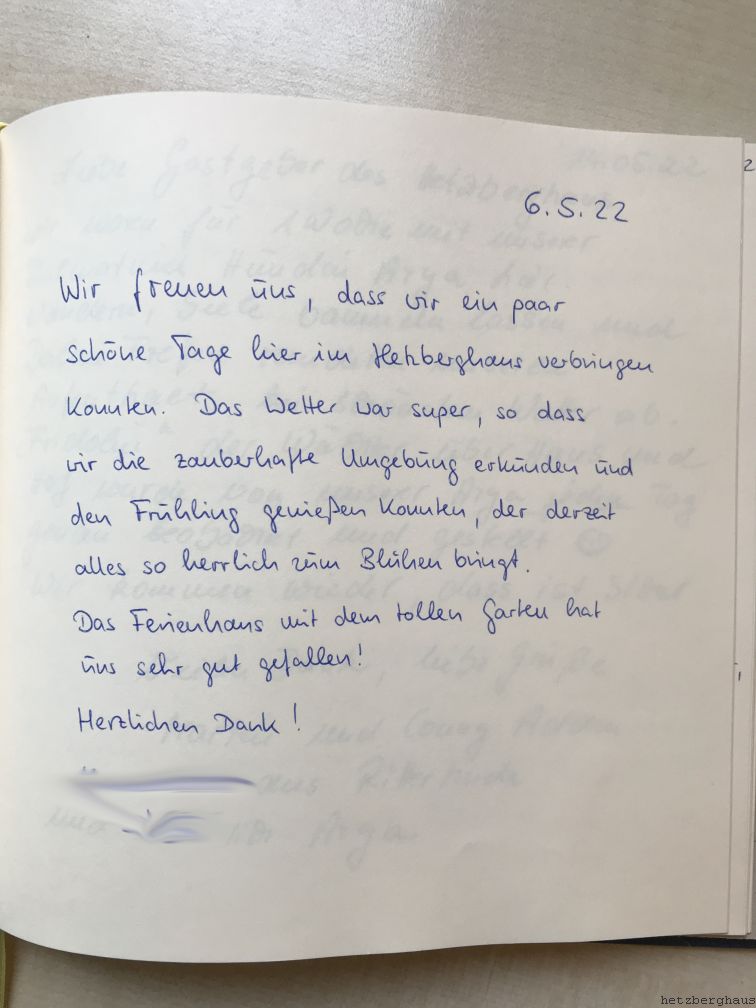 6.5.22
Wir freuen uns, dass wir ein paar
schöne Tage hier im Hetzberghaus verbringen
konnten. Das Wetter war super, so dass
wir die zauberhafte Umgebung erkunden und
den Frühling genießen konnten, der derzeit
alles so herrlich zum Blühen bringt.
Das Ferienhaus mit dem tollen Garten hat
uns sehr gut gefallen!
Herzlichen Dank!
hetzberghaus